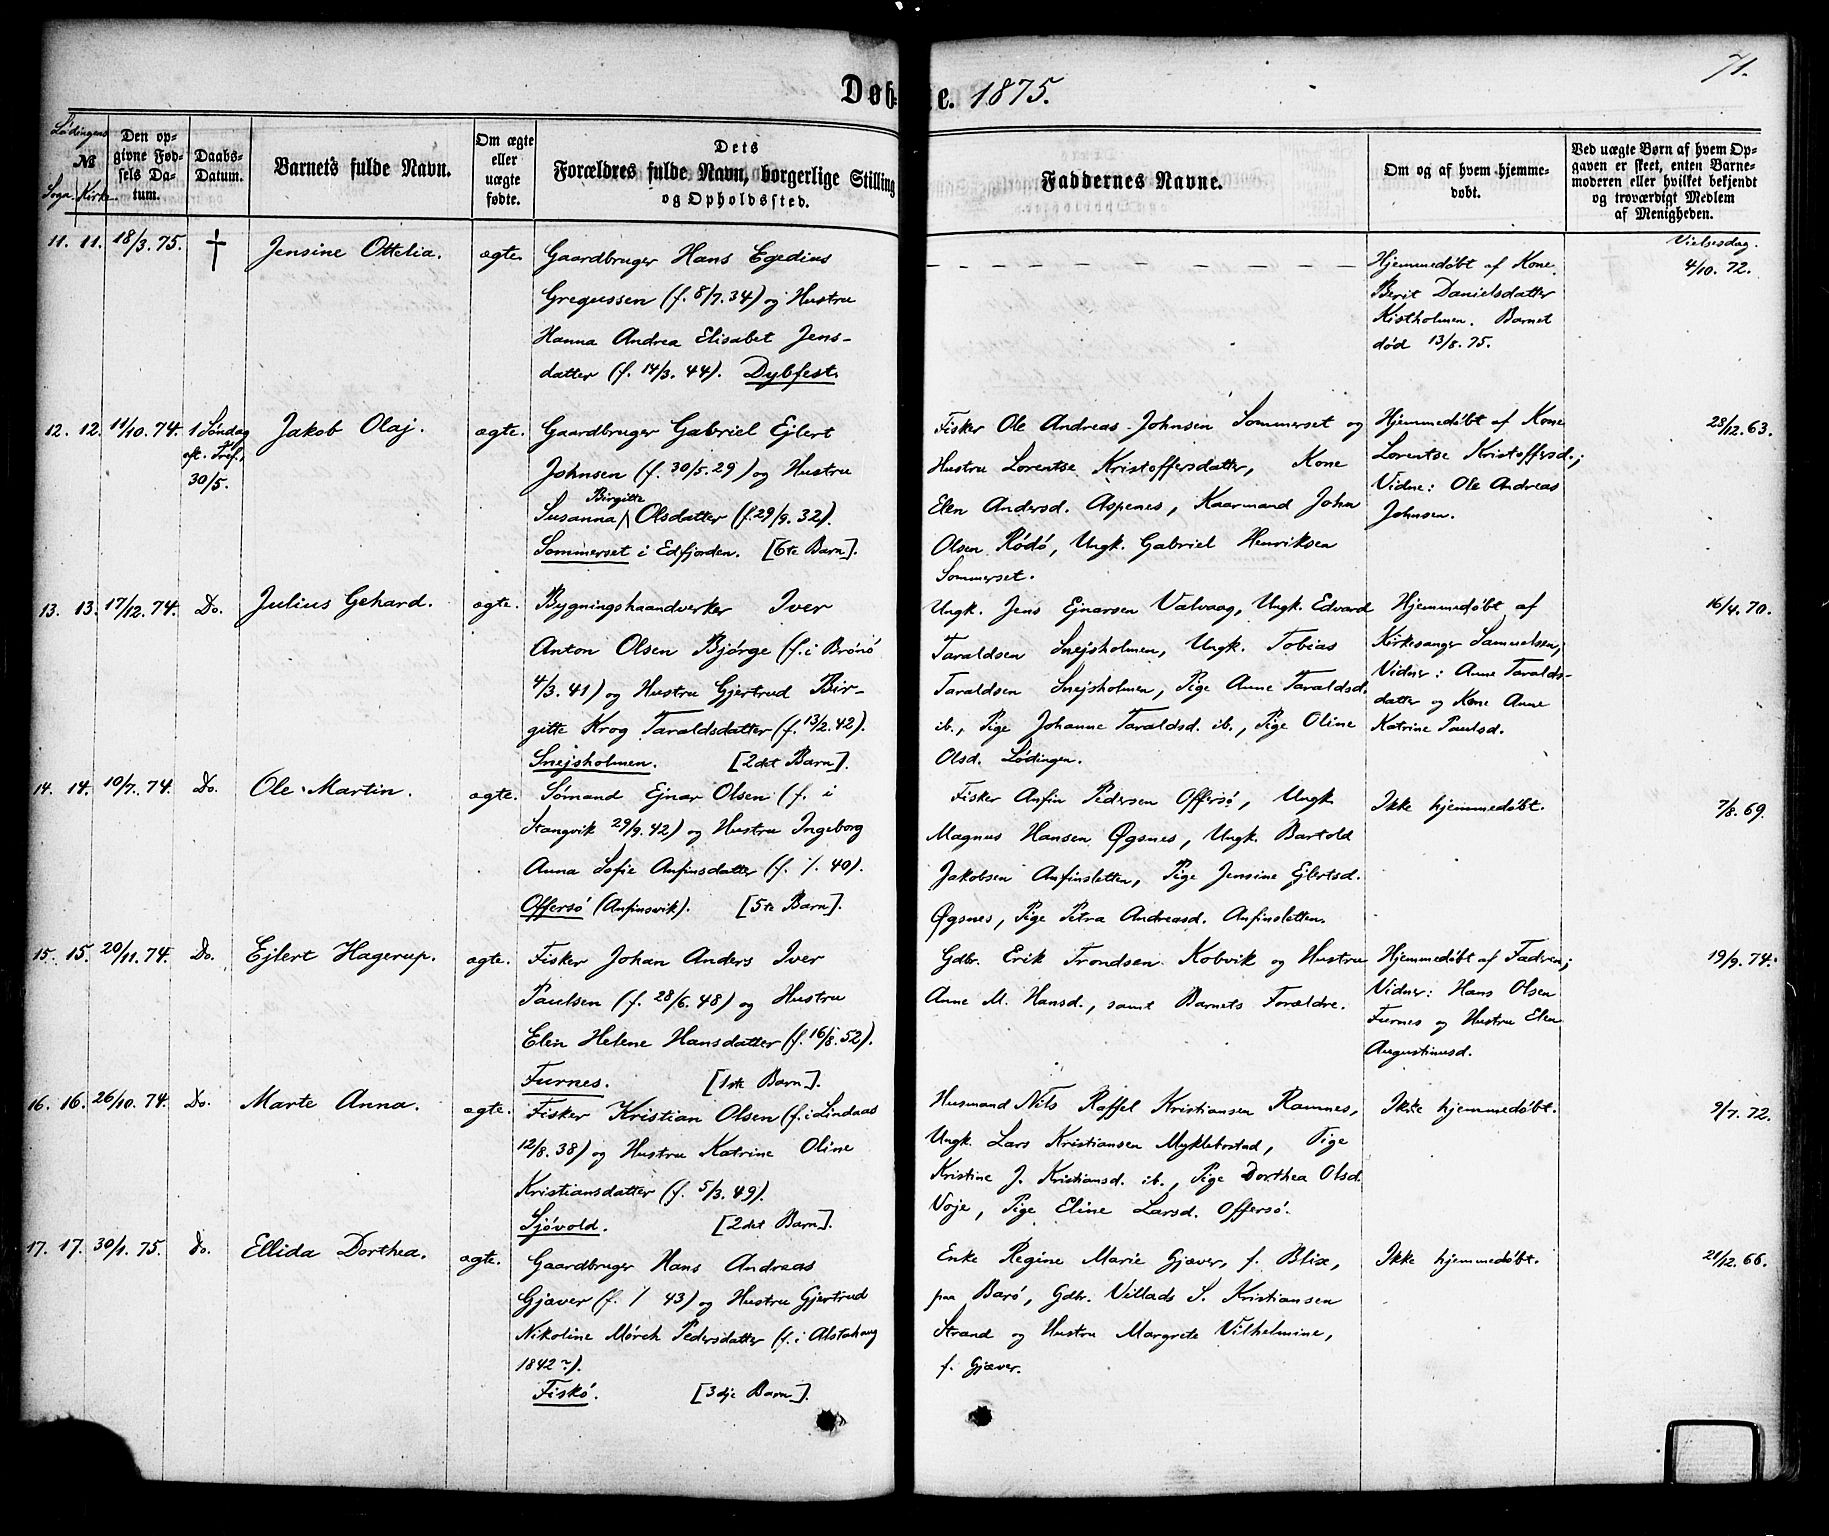 71.
Døbte. 1875.
Lødingens
№
Sogn. Kirke.
Den op-
givne Fød-
sels Da-
tum.
Daabs-
Datum.
Barnets fulde Navn.
Om ægte
eller
uægte
fødte.
Dets
Forældres fulde Navn, borgerlige Stilling
og Opholdssted.
Faddernes Navne.
Om og af hvem hjemme-
døbt.
Ved uægte Børn af hvem Op-
gaven er skeet, enten Barne-
moderen eller hvilket bekjendt
og troværdigt Medlem
af Menigheden.
11. 11. 18/3. 75. † Jensine Ottelia. ægte.
Gaardbruger Hans Egedius
Gregussen (f. 8/7. 34) og Hustru
Hanna Andrea Elisabet Jens-
datter (f. 14/3. 44). Dybfest.
Hjemmedøbt af Kone
Berit Danielsdatter
Kistholmen. Barnet
død 13/8. 75.
Vielsesdag.
4/10. 72.
12. 12. 11/10. 74. 1 Søndag
eft. Tref.,
30/5.
Jakob Olaj. ægte.
Gaardbruger Gabriel Ejlert
Johnsen (f. 30/5. 29) og Hustru
Birgitte
Susanna Olsdatter (f. 29/9. 32).
Sommerset i Edfjorden. [6te Barn].
Fisker Ole Andreas Johnsen Sommerset og
Hustru Lorentse Kristoffersdatter, Kone
Elen Andersd. Aspenes, Kaarmand John
Olsen Rødø, Ungk. Gabriel Henriksen
Sommerset.
Hjemmedøbt af Kone
Lorentse Kristoffersd.;
Vidne: Ole Andreas
Johnsen.
28/12. 63.
13. 13. 17/12. 74. Do. Julius Gehard. ægte.
Bygningshaandverker Iver
Anton Olsen Bjørge (f. i Brønø
4/3. 41) og Hustru Gjertrud Bir-
gitte Krog Taraldsdatter (f. 13/2. 42).
Snejsholmen. [2det Barn].
Ungk. Jens Ejnarsen Valvaag, Ungk. Edvard
Taraldsen Snejsholmen, Ungk. Tobias
Taraldsen Snejsholmen, Pige Anne Taraldsd.
ib., Pige Johanne Taraldsd. ib., Pige Oline
Olsd. Lødingen.
Hjemmedøbt af
Kirkesanger Samuelsen;
Vidner: Anne Taralds-
datter og Kone Anne
Katrine Paulsd.
16/4. 70.
14. 14. 10/7. 74. Do. Ole Martin. ægte.
Sømand Ejnar Olsen (f. i
Stangvik 29/9. 42) og Hustru Ingeborg
Anna Sofie Anfinsdatter (f. / . 40).
Offersø (Anfinsvik). [5te Barn].
Fisker Anfin Pedersen Offersø, Ungk.
Magnus Hansen Øgsnes, Ungk. Bartold
Jakobsen Anfinsletten, Pige Jensine Ejlertsd.
Øgsnes, Pige Petra Andreasd. Anfinsletten.
Ikke hjemmedøbt.
7/8. 69.
15. 15. 20/11. 74. Do. Ejlert Hagerup. ægte.
Fisker Johan Anders Iver
Paulsen (f. 28/6. 48) og Hustru
Elen Helene Hansdatter (f. 16/8. 52).
Furnes. [1ste Barn].
Gdbr. Erik Trondsen Kobvik og Hustru
Anne M. Hansd., samt Barnets Forældre.
Hjemmedøbt af Fadren;
Vidner: Hans Olsen
Furnes og Hustru Elen
Augustinusd.
19/9. 74.
16. 16. 26/10. 74. Do. Marte Anna. ægte.
Fisker Kristian Olsen (f. i Lindaas
12/8. 38) og Hustru Katrine Oline
Kristiansdatter (f. 5/3. 49).
Sjøvold. [2det Barn].
Husmand Nils Raffel Kristiansen Ramnes,
Ungk. Lars Kristiansen Myklebostad, Pige
Kristine J. Kristiansd. ib., Pige Dorthea Olsd.
Voje, Pige Eline Larsd. Offersø.
Ikke hjemmedøbt.
9/7. 72.
17. 17. 30/1. 75. Do. Ellida Dorthea. ægte.
Gaardbruger Hans Andreas
Gjæver (f. / 43) og Hustru Gjertrud
Nikoline Mørch Pedersdatter (f. i Alstahaug
1842?).
Fiskø. [3dje Barn].
Enke Regine Marie Gjæver, f. Blix,
paa Barø, Gdbr. Villads S. Kristiansen
Strand og Hustru Margrete Vilhelmine,
f. Gjæver.
Ikke hjemmedøbt.
21/12. 66.